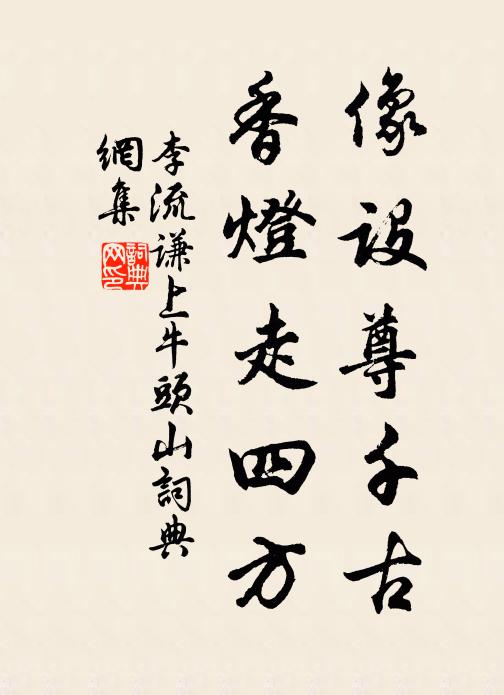 像設尊千古
香燈走四方
李流谦上牛頭山詞典
網集
詞典網印